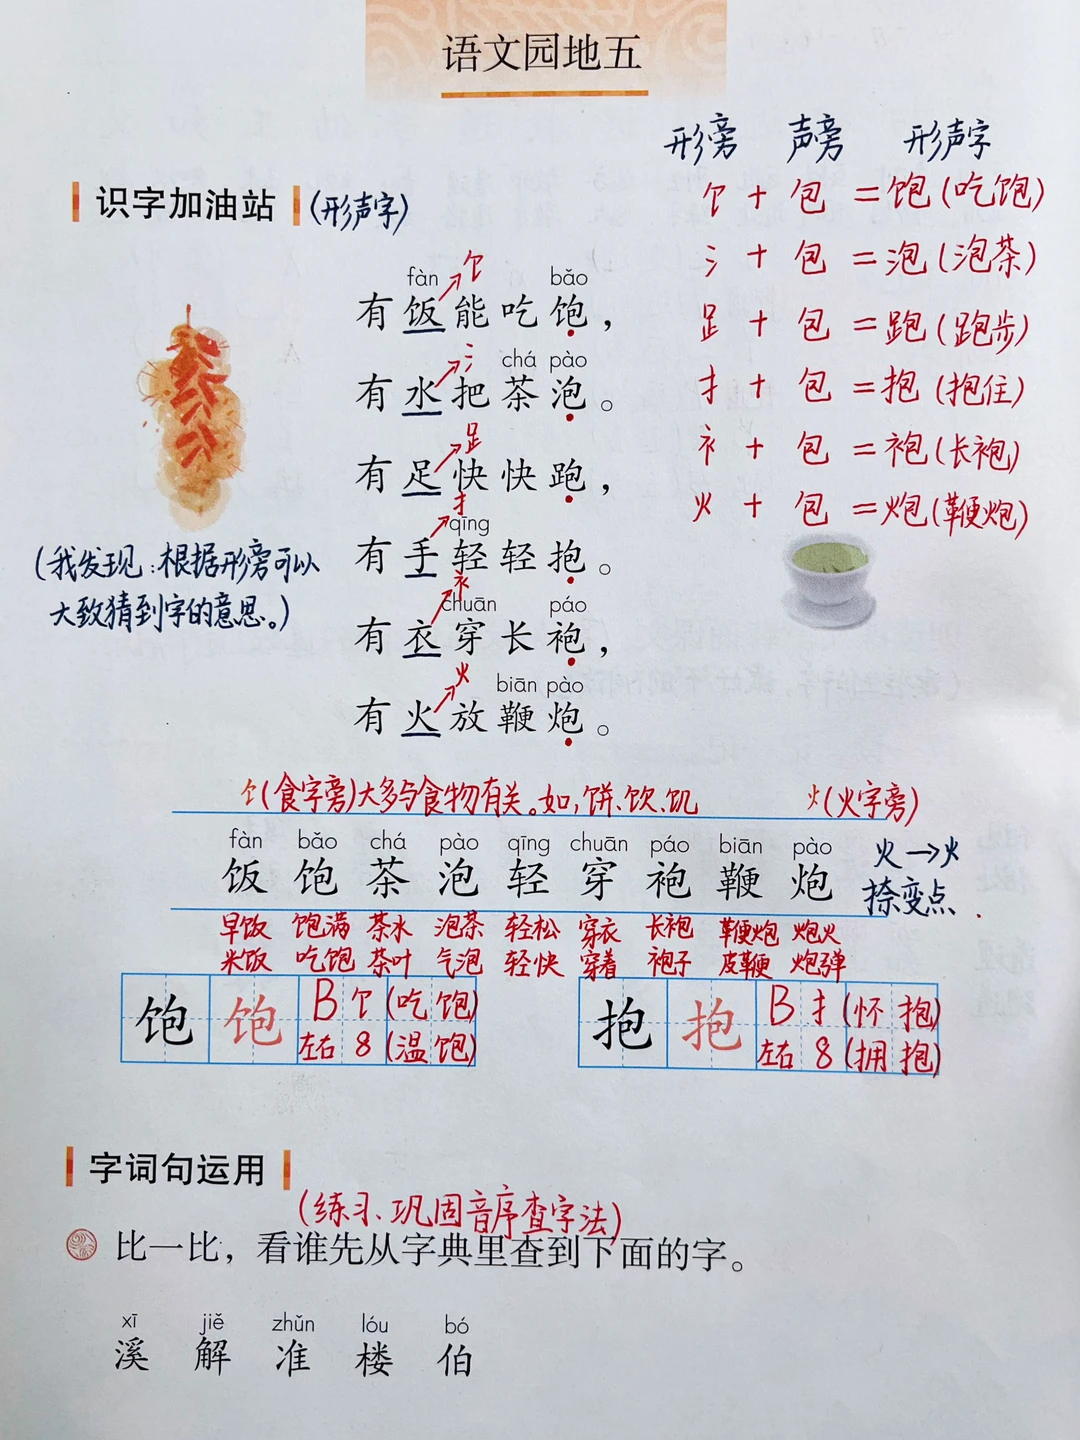 语文园地五
形旁 声旁 形声字
饣 + 包 = 饱(吃饱)
氵 + 包 = 泡(泡茶)
⻊ + 包 = 跑(跑步)
扌 + 包 = 抱(抱住)
衤 + 包 = 袍(长袍)
火 + 包 = 炮(鞭炮)
识字加油站 (形声字)
饣
fàn bǎo
有饭能吃饱，
氵
chá pào
有水把茶泡。
⻊
有足快快跑，
扌
qīng
有手轻轻抱。
衤
chuān páo
有衣穿长袍，
火
biān pào
有火放鞭炮。
(我发现:根据形旁可以
大致猜到字的意思。)
饣(食字旁)大多与食物有关。如,饼、饮、饥 火(火字旁)
fàn bǎo chá pào qīng chuān páo biān pào
饭 饱 茶 泡 轻 穿 袍 鞭 炮
火→火
捺变点
早饭 饱满 茶水 泡茶 轻松 穿衣 长袍 鞭炮 炮火
米饭 吃饱 茶叶 气泡 轻快 穿着 袍子 皮鞭 炮弹
饱 饱 B 饣 (吃饱)
左右 8 (温饱)
抱 抱 B 扌 (怀抱)
左右 8 (拥抱)
字词句运用
(练习、巩固音序查字法)
比一比，看谁先从字典里查到下面的字。
xī jiě zhǔn lóu bó
溪 解 准 楼 伯